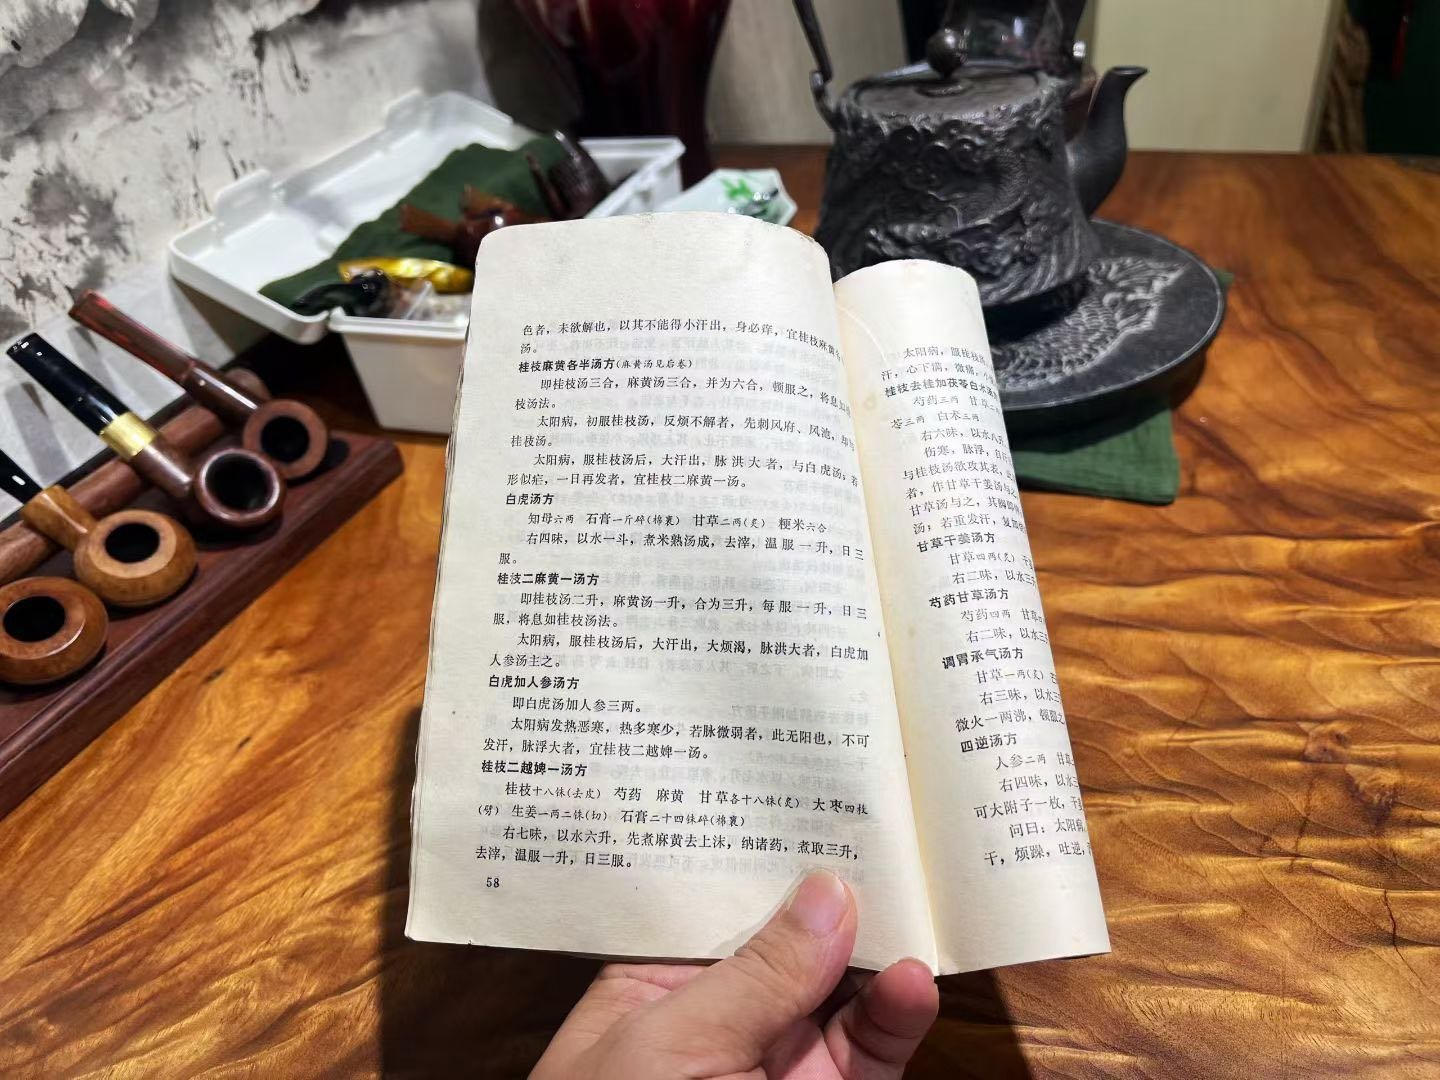 色者，未欲解也，以其不能得小汗出，身必痒，宜桂枝麻黄各
汤。
桂枝麻黄各半汤方(麻黄汤见后卷)
即桂枝汤三合，麻黄汤三合，并为六合，顿服之，将息如
枝汤法。
太阳病，初服桂枝汤，反烦不解者，先刺风府、风池，却与
桂枝汤。
太阳病，服桂枝汤后，大汗出，脉洪大者，与白虎汤；若
形似疟，一日再发者，宜桂枝二麻黄一汤。
白虎汤方
知母六两 石膏一斤碎(棉裹) 甘草二两(炙) 粳米六合
右四味，以水一斗，煮米熟汤成，去滓，温服一升，日三
服。
桂枝二麻黄一汤方
即桂枝汤二升，麻黄汤一升，合为三升，每服一升，日三
服，将息如桂枝汤法。
太阳病，服桂枝汤后，大汗出，大烦渴，脉洪大者，白虎加
人参汤主之。
白虎加人参汤方
即白虎汤加人参三两。
太阳病发热恶寒，热多寒少，若脉微弱者，此无阳也，不可
发汗，脉浮大者，宜桂枝二越婢一汤。
桂枝二越婢一汤方
桂枝十八铢(去皮) 芍药 麻黄 甘草各十八铢(炙) 大枣四枚
(劈) 生姜一两二铢(切) 石膏二十四铢碎(棉裹)
右七味，以水六升，先煮麻黄去上沫，纳诸药，煮取三升，
去滓，温服一升，日三服。
58
太阳病，服桂枝汤
汗，心下满，微痛，小
桂枝去桂加茯苓白术汤
芍药三两 甘草二
苓三两 白术三两
右六味，以水八升
伤寒，脉浮，自汗
与桂枝汤欲攻其表，
者，作甘草干姜汤与之
甘草汤与之，其脚即
汤；若重发汗，复
甘草干姜汤方
甘草四两(炙) 干
右二味，以水三
芍药甘草汤方
芍药四两 甘草
右二味，以水三
调胃承气汤方
甘草一两(炙)
右三味，以水三
微火一两沸，顿服之
四逆汤方
人参二两 甘草
右四味，以水三
可大附子一枚，干
问曰：太阳病
干，烦躁，吐逆，